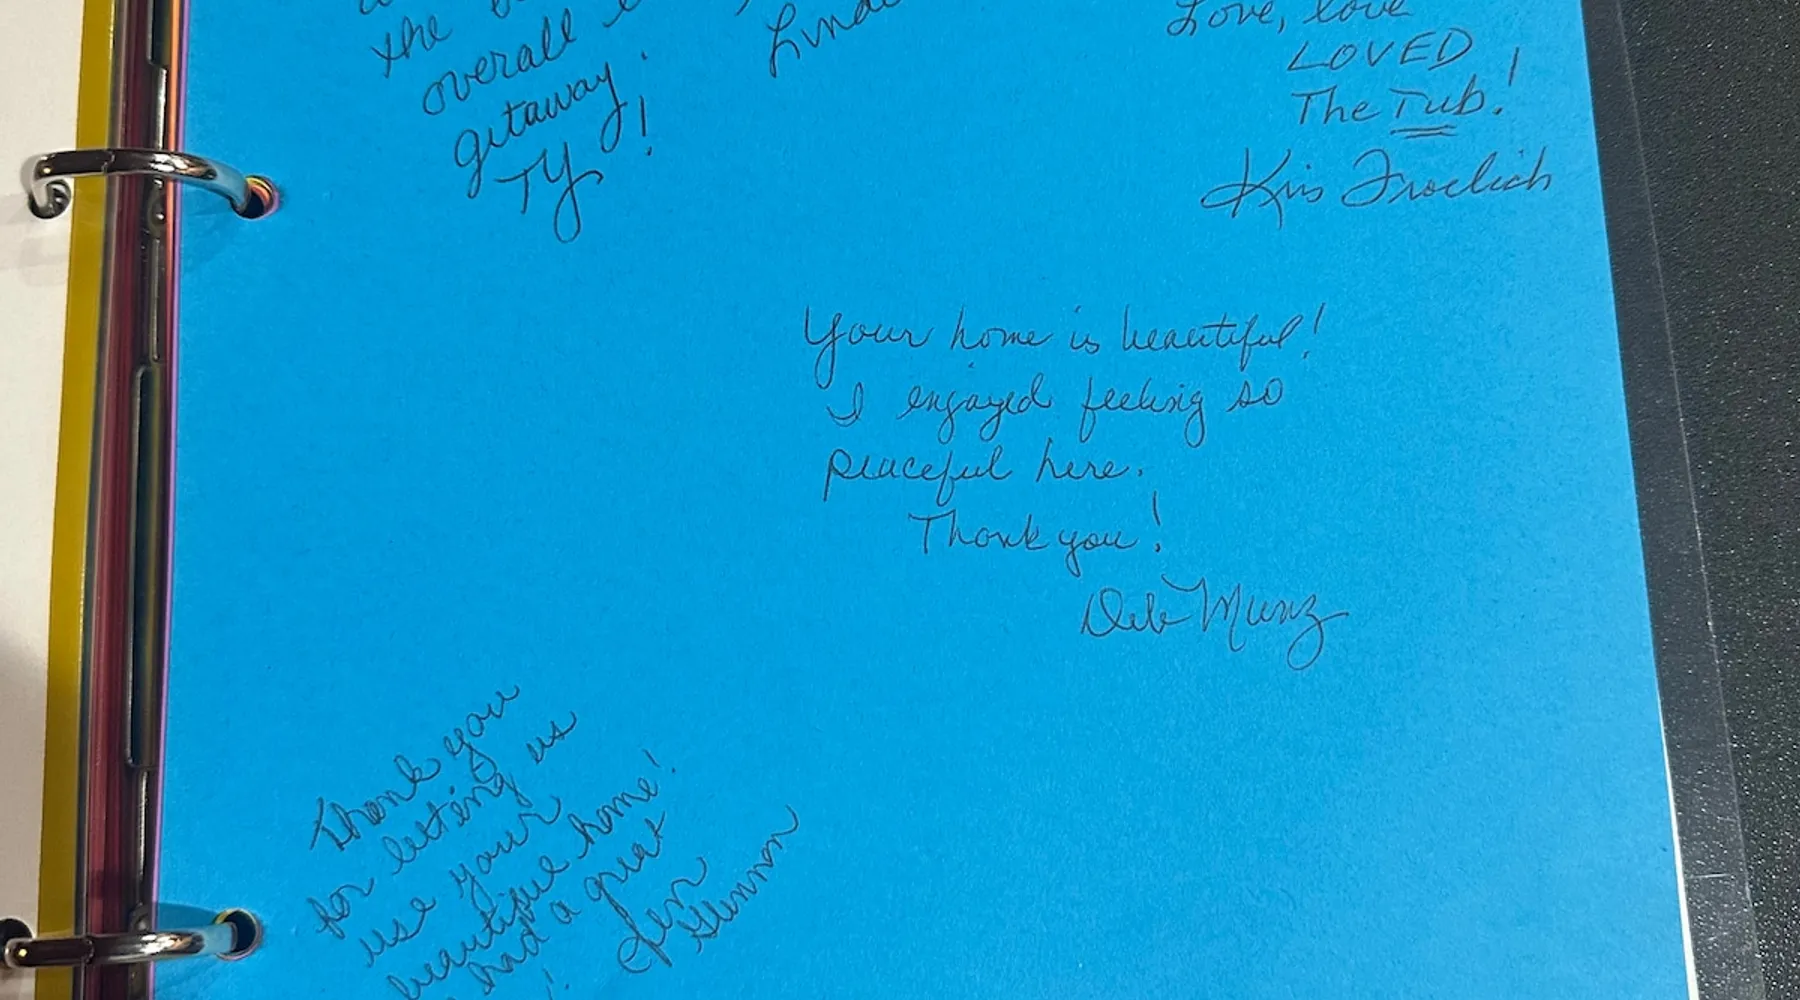 the
overall
getaway.
TY!
Lynda
Love, love
LOVED
The Tub!
Kris Froelich
Your home is beautiful!
I enjoyed feeling so
peaceful here.
Thank you!
Deb Munz
Thank you
for letting us
use your
beautiful home!
had a great
Jen